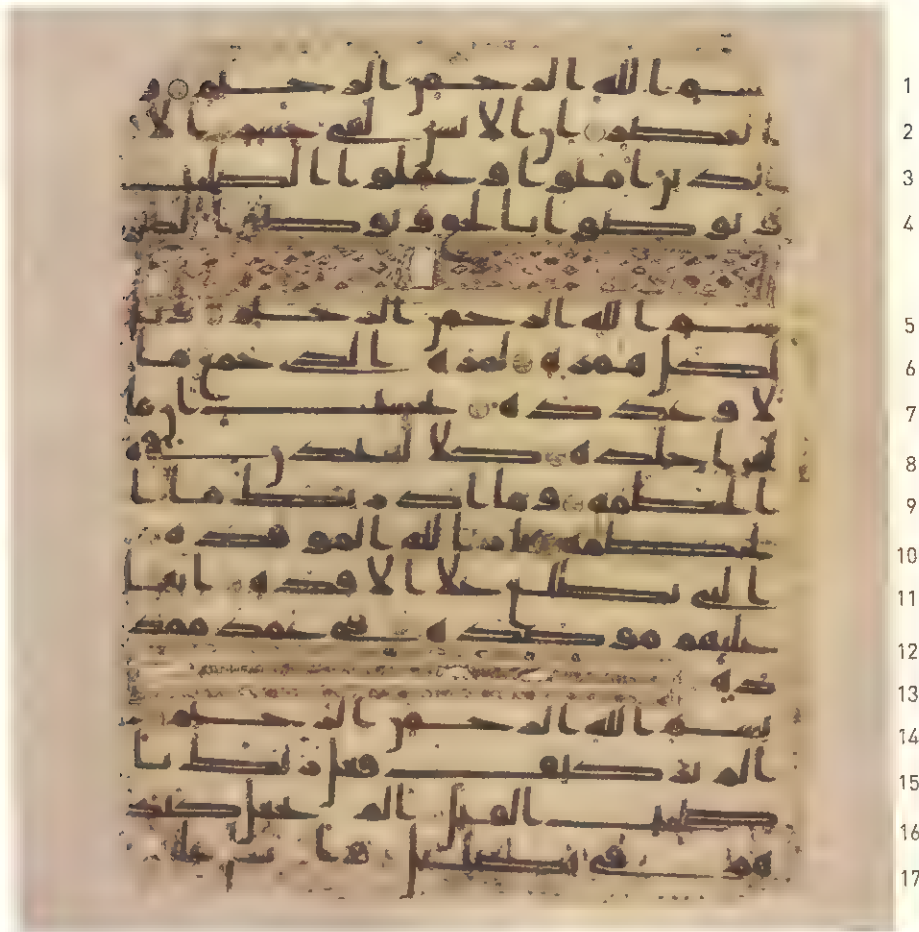 1 بسم الله الرحمن الرحيم و
2 العصر ان الانسن لفي خسر الا
3 الذين امنوا وعملوا الصلحت
4 و توصوا بالحق وتوصوا بالصبر
5 بسم الله الرحمن الرحيم ويل
6 لكل همزة لمزة الذي جمع ما
7 لا وعدده يحسب ان ما
8 له اخلده كلا لينبذن في
9 الحطمة وما ادريك ما ا
10 لحطمة نار الله الموقدة
11 التي تطلع علا الافدة انها
12 عليهم موصدة في عمد ممد
13 دة
14 بسم الله الرحمن الرحيم
15 الم تر كيف فعل ربك با
16 صحب الفيل الم يجعل كيد
17 هم في تضليل وا رسل علي